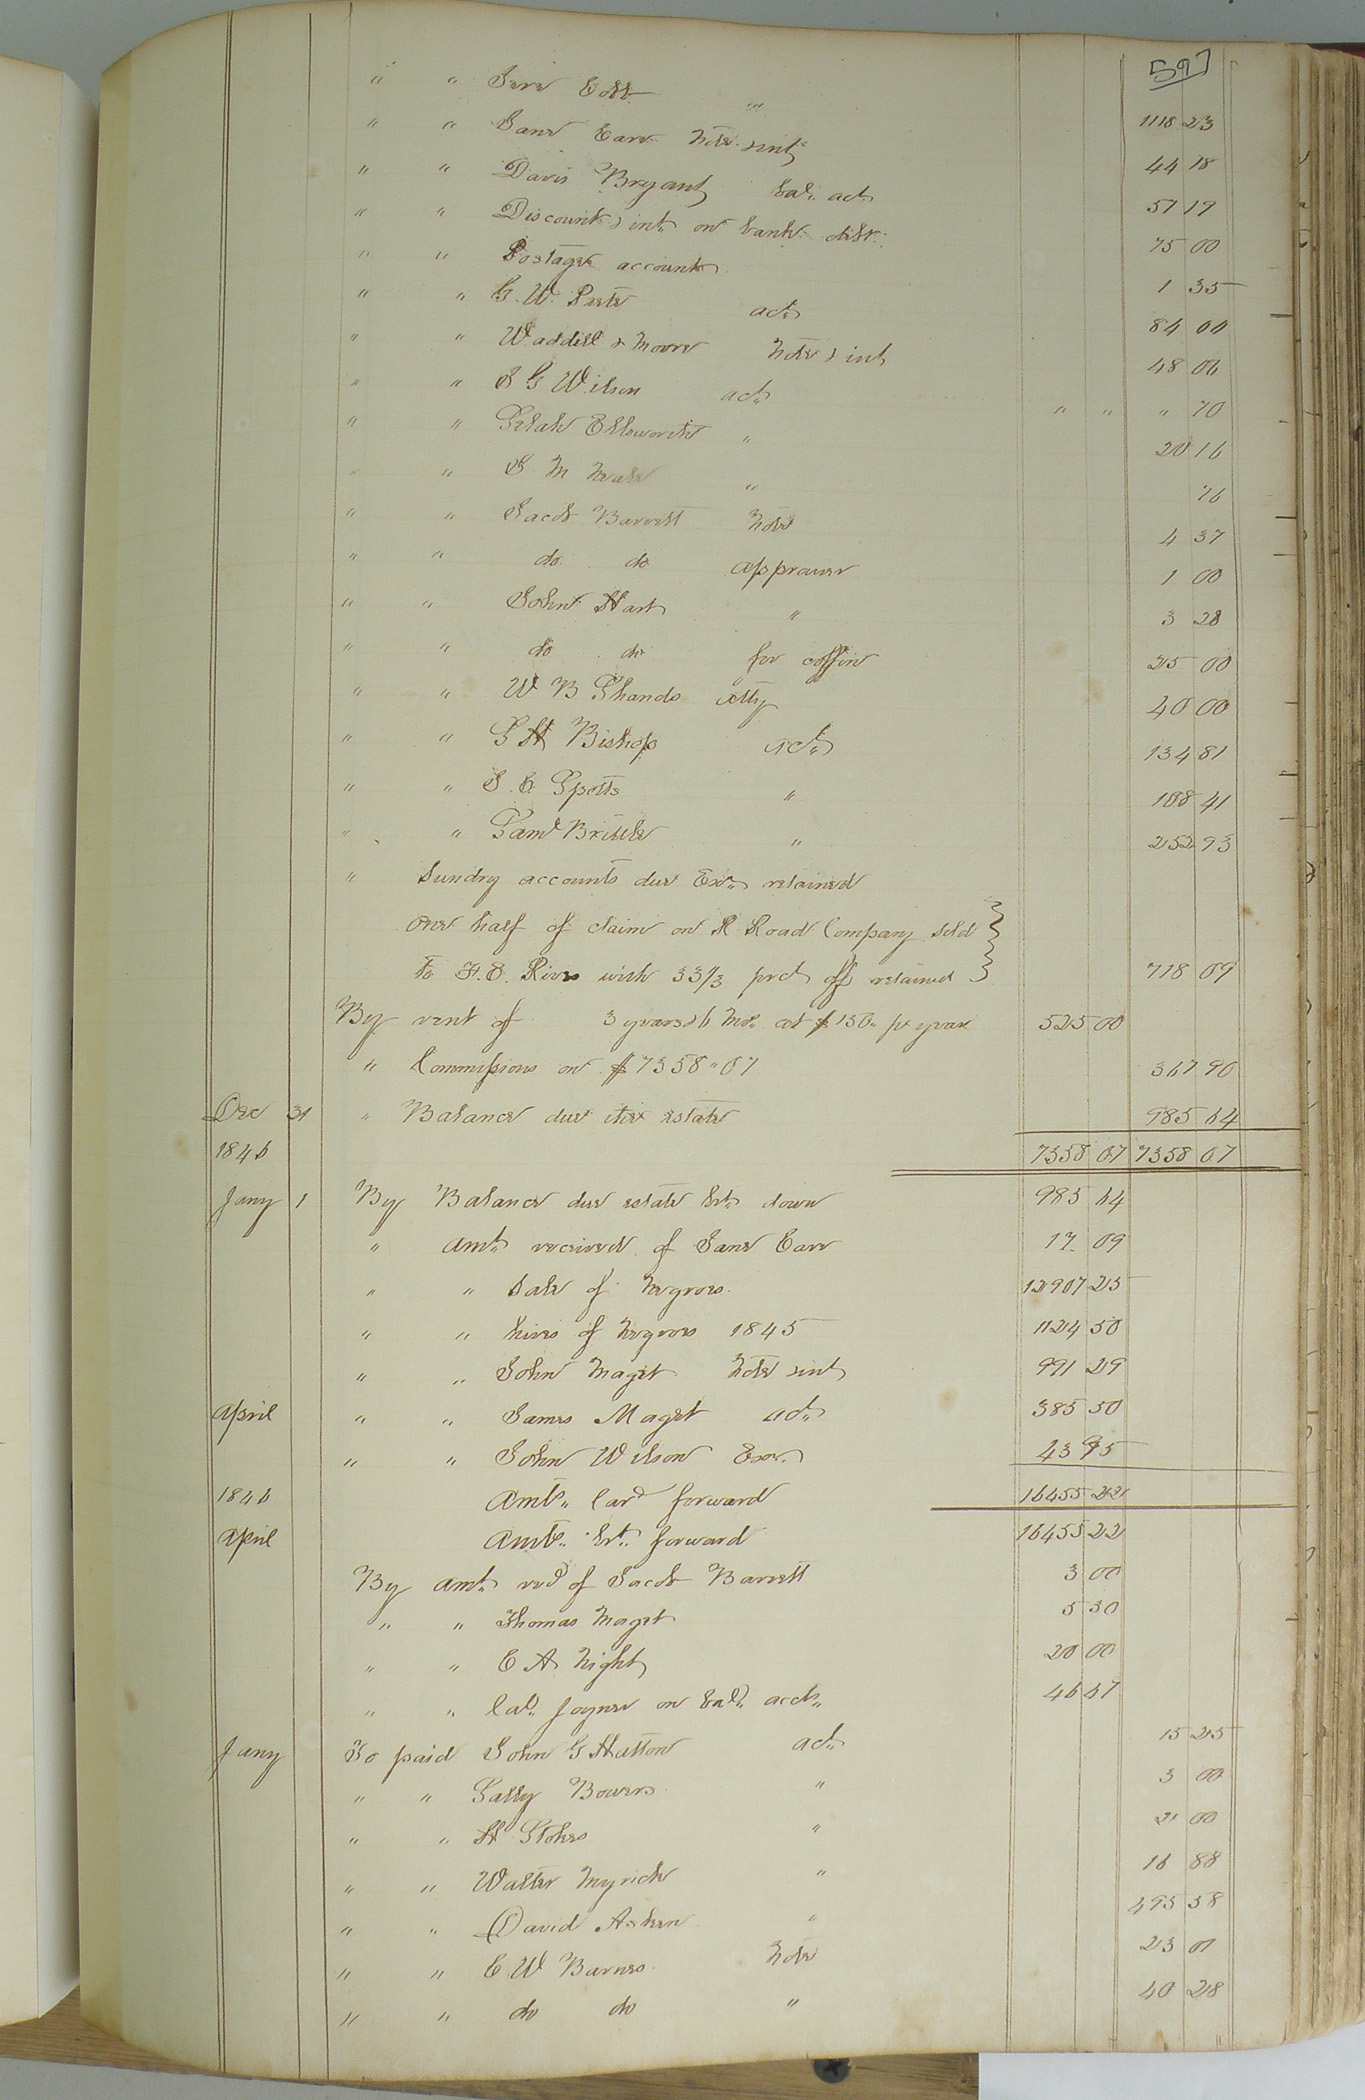 [59]
" " Jane Cobb " 1118 23
" " Jane Carr Note & int 44 18
" " Davis Bryant bal. act. 57 19
" " Discount & int. on bank debt. 75 00
" " Postage account 1 35
" " G. W. Peete act. 84 00
" " Waddill & Moore Note & int 48 06
" " S G Wilson act. " " " 70
" " Ellsworth " 20 16
" M " 76
" " Jacob Barrett Note 4 37
" " do do 1 00
" " John Hart " 3 28
" " do do for coffin 25 00
" " W B Shands Atty 40 00
" " S H Bishop act. 134 81
" " S. E. Spotts " 108 41
" " Saml Brittle " 252 93
" Sundry accounts due Exr. retained
one half of claim on R Road Company sold
to F. E. Rives with 33⅓ prct off retained 718 09
By rent of 3 years & 6 mos. at $150. pr year 525 00
" Commissions on $7358 " 07 367 90
Dec 31 " Balance due the estate 985 64
1846 7358 07 7358 07
Jany 1 By Balance due estate brt. down 985 64
" Amt. received of Jane Carr 17 09
" " Sale of Negroes. 12907 25
" " hires of Negroes 1845 1124 50
" " John Maget Note & int 991 29
April " " James Maget act. 385 50
" " John Wilson Exr. 43 95
1846 Amts. card forward 16455 22
April Amts. brt. forward 16455 22
By Amt. recd of Jacob Barrett 3 00
" " Thomas Maget 5 30
" " E A Night 20 00
" " Joyner on bald. acct. 46 47
Jany To paid John G Hatton act. 15 25
" " Sally Bowers " 3 00
" " H Stokes " 2 00
" " Walter Myrick " 16 88
" " David Askew " 495 58
" " E. W Barnes Note 23 01
" " do do " 40 28